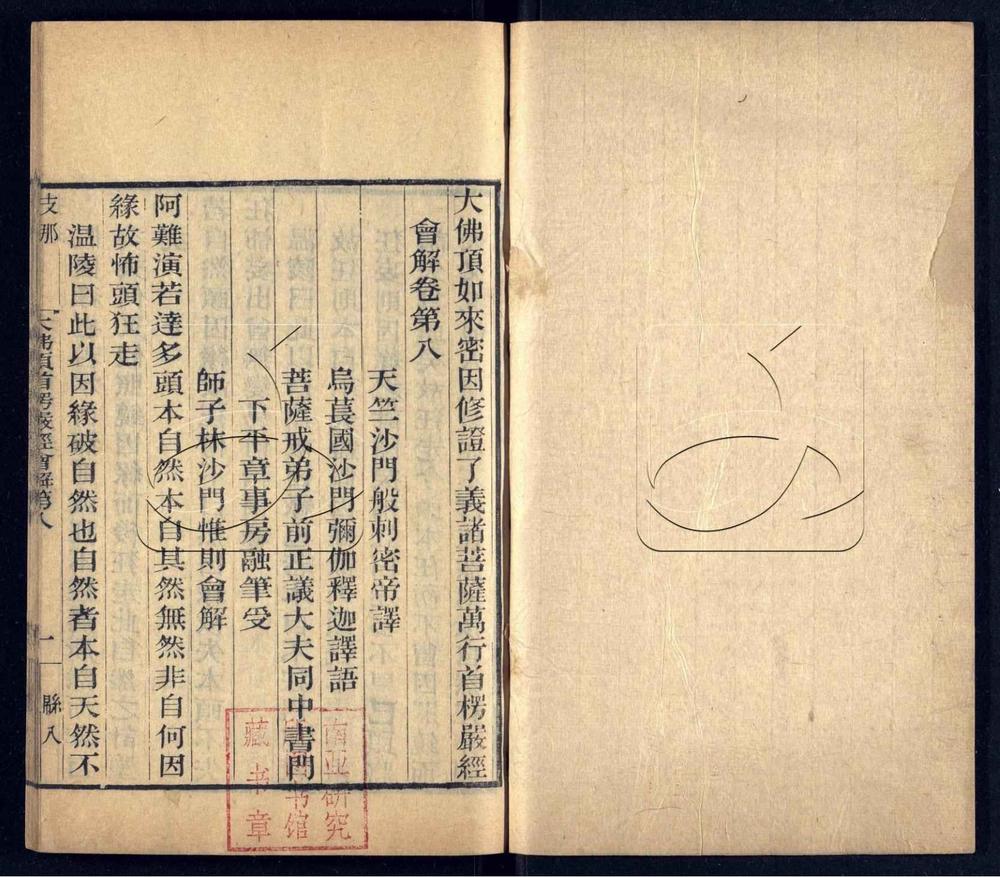 大佛頂如來密因修證了義諸菩薩萬行首楞嚴經
會解卷第八
天竺沙門般剌密帝譯
烏萇國沙門彌伽釋迦譯語
菩薩戒弟子前正議大夫同中書門
下平章事房融筆受
師子林沙門惟則會解
阿難演若達多頭本自然本自其然無然非自何因
緣故怖頭狂走
温陵曰此以因緣破自然也自然者本自天然不
支那
大佛頂首楞嚴經會解第八
一
縣八
南亚研究
书馆
藏书章